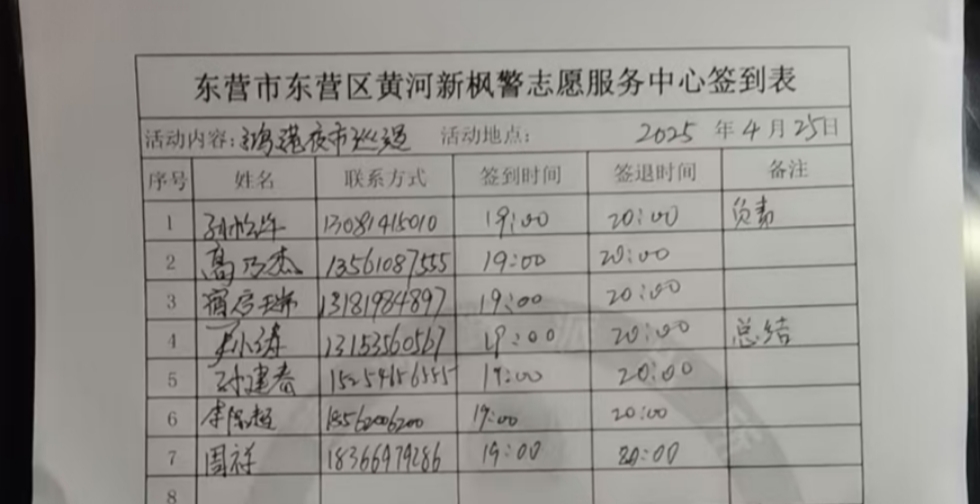 东营市东营区黄河新枫警志愿服务中心签到表
活动内容: 港夜市巡逻 活动地点: 2025 年 4 月 25日
序号 姓名 联系方式 签到时间 签退时间 备注
1 13081415010 19:00 20:00 负责
2 高乃杰 13561087555 19:00 20:00
3 13181984897 19:00 20:00
4 小涛 13153560567 19:00 20:00 总结
5 孙建春 15254656555 19:00 20:00
6 李保超 18562006200 19:00 20:00
7 周祥 18366979286 19:00 20:00
8